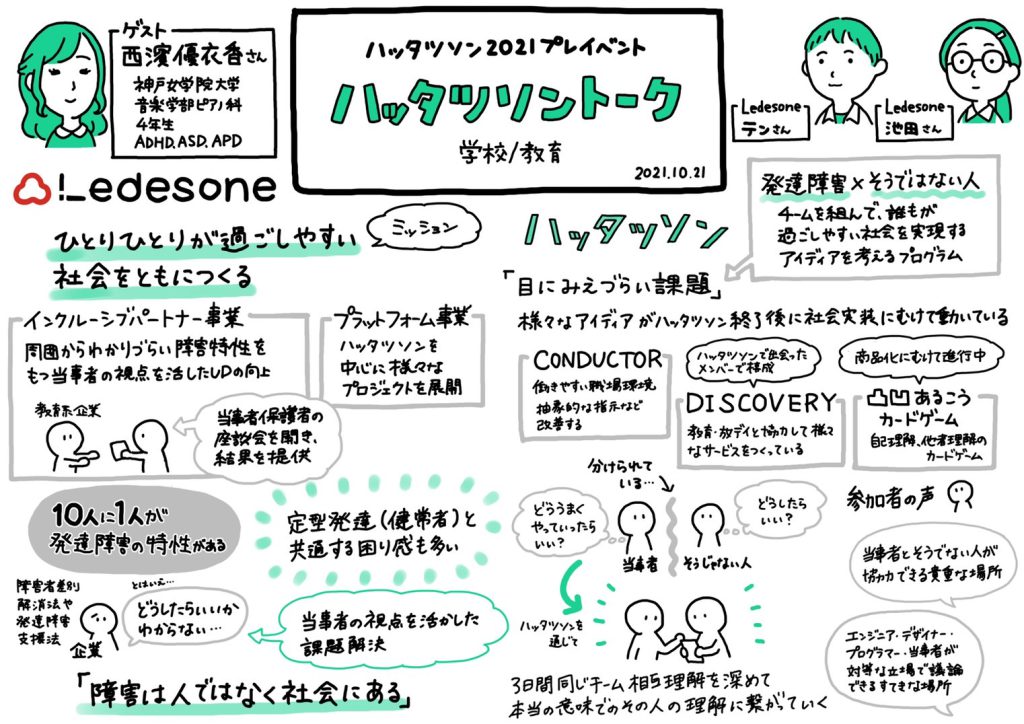 ゲスト
西濱優衣香さん
神戸女学院大学
音楽学部ピアノ科
4年生
ADHD.ASD.APD
ハッタツソン2021プレイベント
ハッタツソントーク
学校/教育
2021.10.21
Ledesone
テンさん
Ledesone
池田さん
Ledesone
ミッション
ひとりひとりが過ごしやすい
社会をともにつくる
インクルーシブパートナー事業
周囲からわかりづらい障害特性を
もつ当事者の視点を活したUDの向上
教育系企業
当事者保護者の
座談会を開き、
結果を提供
プラットフォーム事業
ハッタツソンを
中心に様々な
プロジェクトを展開
10人に1人が
発達障害の特性がある
定型発達(健常者)と
共通する困り感も多い
障害者差別
解消法や
発達障害
支援法
とはいえ…
企業
どうしたらいいか
わからない…
当事者の視点を活かした
課題解決
「障害は人ではなく社会にある」
ハッタツソン
発達障害×そうではない人
チームを組んで、誰もが
過ごしやすい社会を実現する
アイディアを考えるプログラム
「目にみえづらい課題」
様々なアイディアがハッタツソン終了後に社会実装にむけて動いている
CONDUCTOR
働きやすい職場環境
抽象的な指示など
改善する
ハッタツソンで出会った
メンバーで構成
DISCOVERY
教育・放デイと協力して様々
なサービスをつくっている
商品化にむけて進行中
凸凹あるこう
カードゲーム
自己理解、他者理解の
カードゲーム
分けられて
いる…
どううまく
やっていったら
いい?
当事者
そうじゃない人
どうしたら
いい?
ハッタツソンを
通じて
3日間同じチーム相互理解を深めて
本当の意味でのその人の理解に繋がていく
参加者の声
当事者とそうでない人が
協力できる貴重な場所
エンジニア・デザイナー・
プログラマー・当事者が
対等な立場で議論
できるすてきな場所